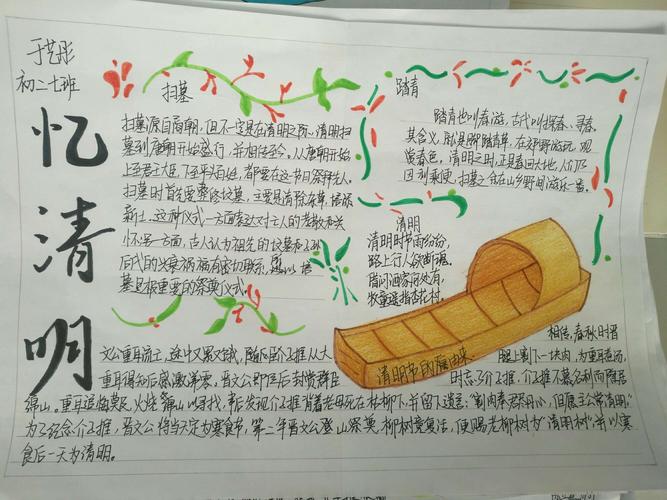 于艺彤
初二七班
忆清明
扫墓
扫墓源自商朝,但不一定是在清明之际,清明扫
墓到唐朝开始盛行,并相传至今。从唐朝开始
上至君王大臣,下至平民百姓,都要在这节日祭拜先人。
扫墓时首先要整修坟墓,主要是清除杂草,培添
新土。这种仪式一方面表达对亡人的孝敬和关
怀,另一方面,古人认为祖先的坟墓和子孙
后代的兴衰祸福有密切联系,所以培
墓是极重要的祭奠仪式。
踏青
踏青也叫春游,古代叫探春、寻春。
其含义,就是脚踏青草,在郊野游玩,观
赏春色。清明之时,正是春回大地,人们乃
因利乘便,扫墓之余在山乡野间游乐一番。
清明
清明时节雨纷纷,
路上行人欲断魂。
借问酒家何处有,
牧童遥指杏花村。
清明节的由来
相传,春秋时晋
文公重耳流亡,途中又累又饿,随臣介子推从大
腿上割下一块肉,为重耳煮汤,
重耳得知后感激涕零。晋文公即位后封赏群臣
时忘了介子推,介子推不慕名利而隐居
绵山。重耳追悔莫及,火烧绵山以寻找,事后发现介子推背着老母死在枯柳下,并留下遗言:"割肉奉君尽丹心,但愿主公常清明。"
为了纪念介子推,晋文公将当天定为寒食节,第二年晋文公登山祭奠,柳树竟复活,便赐老柳树为"清明树",并以寒
食后一天为清明。